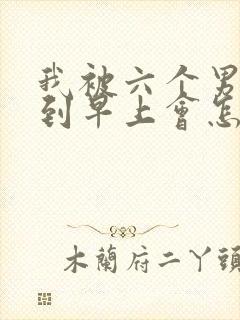 我被六个男
到早上會怎
木蘭府二丫頭